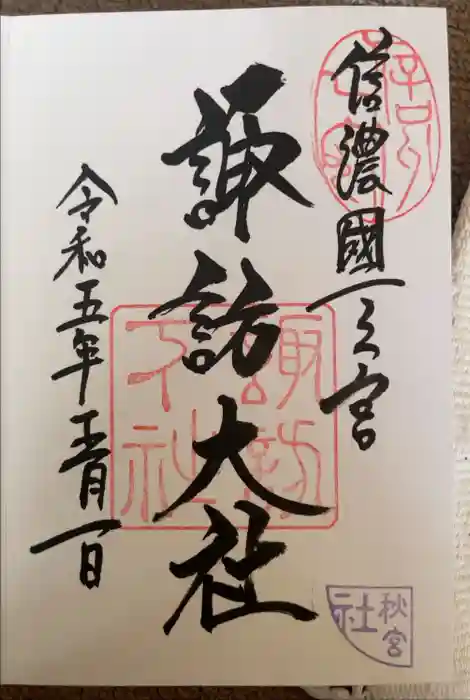 信濃國一之宮
諏訪大社
諏訪
下社
令和五年五月一日
秋宮
社